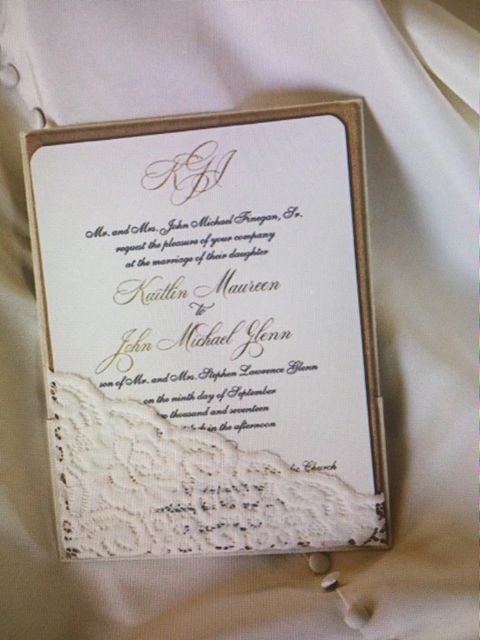 KGJ
Mr. and Mrs. John Michael Finegan, Sr.
request the pleasure of your company
at the marriage of their daughter
Kaitlin Maureen
to
John Michael Glenn
son of Mr. and Mrs. Stephen Lawrence Glenn
on the ninth day of September
thousand and seventeen
in the afternoon
Church